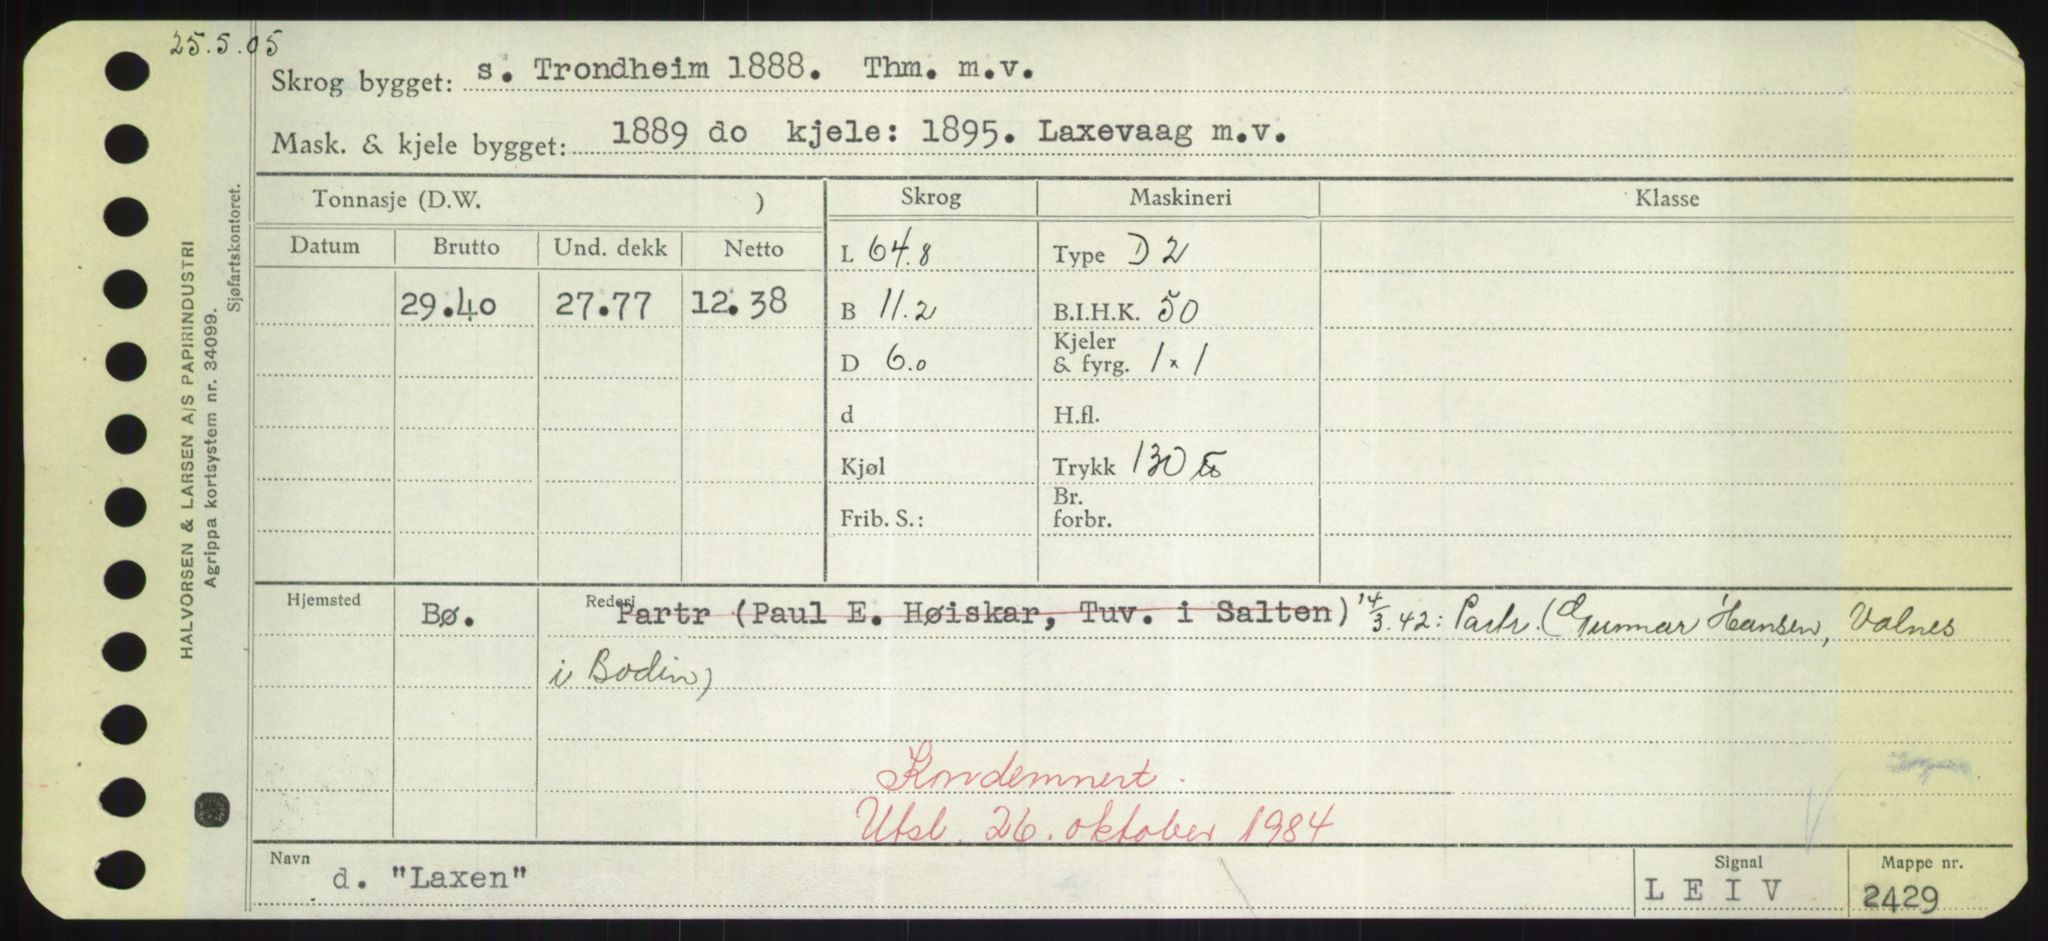 25.5.05
Skrog bygget: s. Trondheim 1888. Thm. m.v.
Mask. & kjele bygget: 1889 do kjele: 1895. Laxevaag m.v.
Tonnasje (D.W. ) Skrog Maskineri Klasse
Datum Brutto Und. dekk Netto L 64.8 Type D 2
29.40 27.77 12.38 B 11.2 B.I.H.K. 50
D 6.0 Kjeler & fyrg. 1 × 1
d H.fl.
Kjøl Trykk 130 ℔
Frib. S.: Br. forbr.
Hjemsted Bø. Rederi Partr (Paul E. Høiskar, Tuv. i Salten) 14/3.42: Partr. (Gunnar Hansen, Valnes
i Bodin)
Kondemnert.
Utsl. 26. oktober 1984
Navn d. "Laxen" Signal L E I V Mappe nr. 2429
HALVORSEN & LARSEN A/S PAPIRINDUSTRI
Agrippa kortsystem nr. 34099.
Sjøfartskontoret.